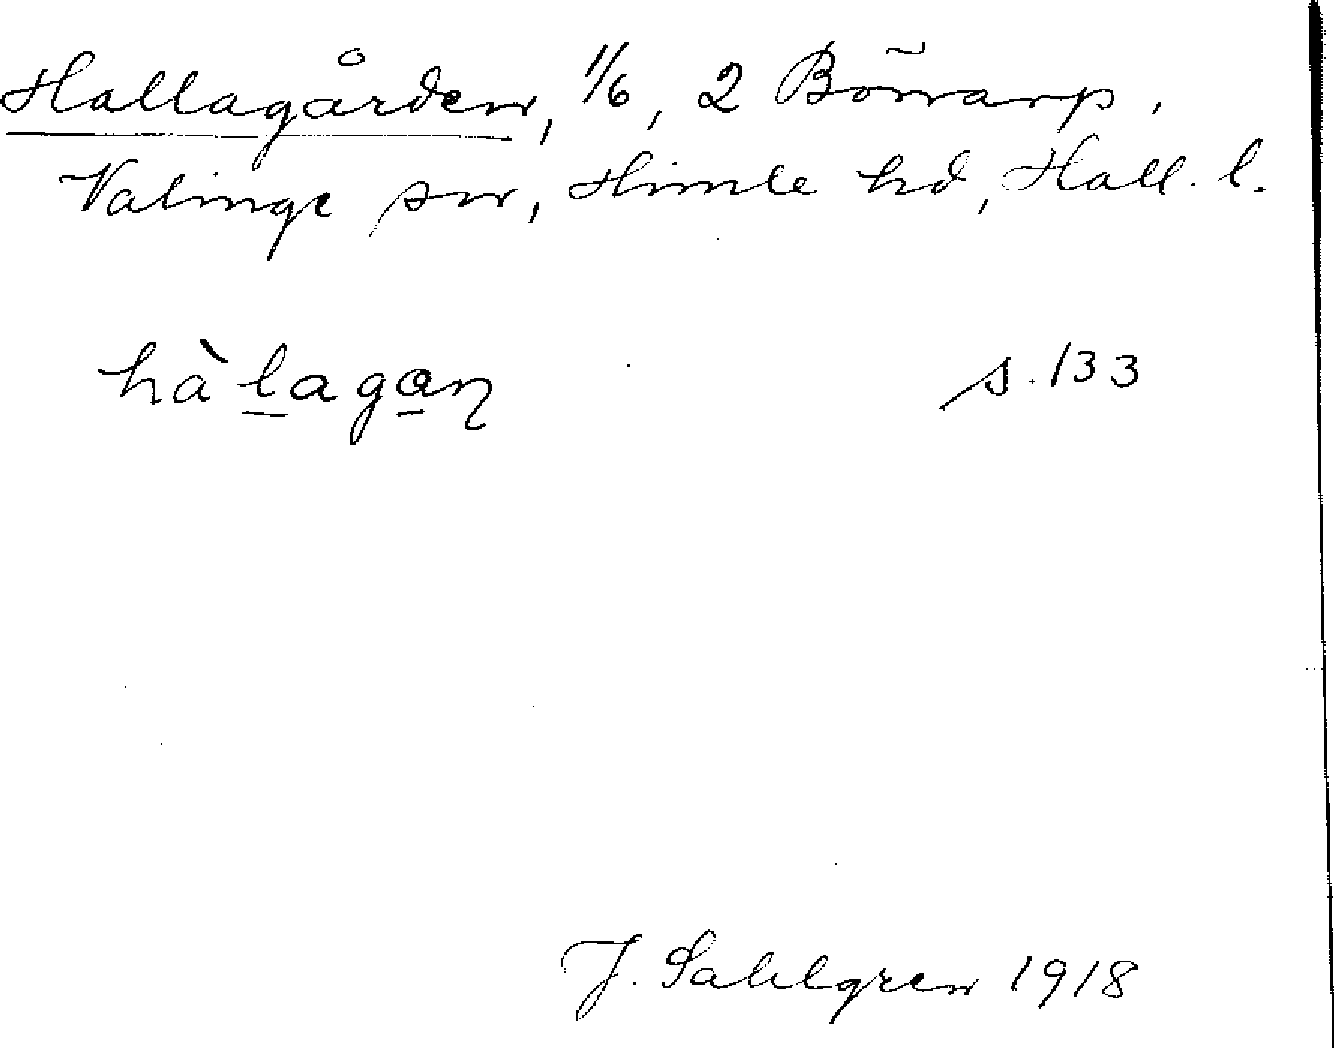 Hallagården, 1/6, 2 Börrarp,
Valinge sn, Himle hd, Hall. l.
hàlagaɳ s. 133
J. Sahlgren 1918